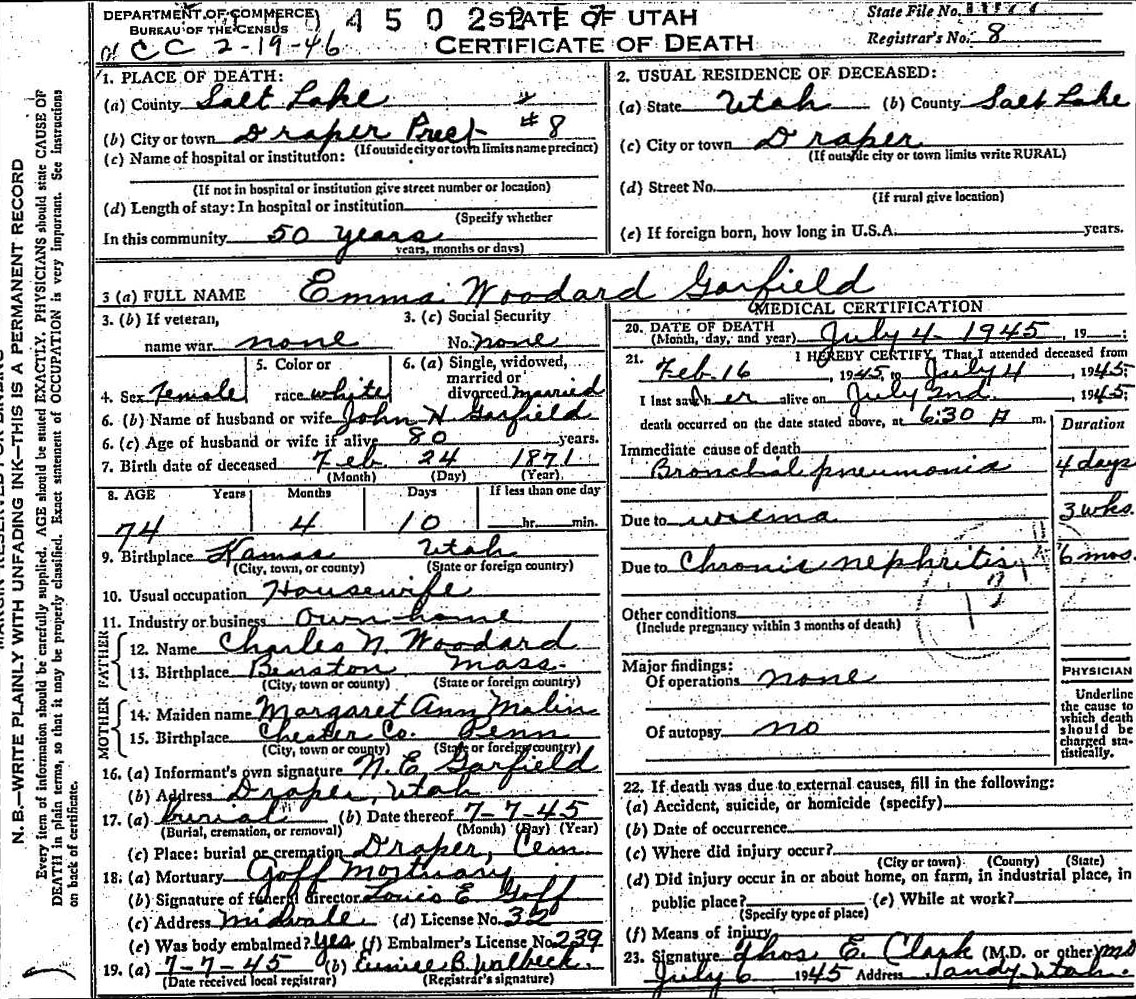 DEPARTMENT OF COMMERCE
BUREAU OF THE CENSUS
CC 2-19-46
4 5 0 2
STATE OF UTAH
CERTIFICATE OF DEATH
State File No.
Registrar's No. 8
1. PLACE OF DEATH:
(a) County Salt Lake
(b) City or town Draper Prect #8
(If outside city or town limits name precinct)
(c) Name of hospital or institution:
(If not in hospital or institution give street number or location)
(d) Length of stay: In hospital or institution
(Specify whether
In this community 50 years
years, months or days)
2. USUAL RESIDENCE OF DECEASED:
(a) State Utah (b) County Salt Lake
(c) City or town Draper
(If outside city or town limits write RURAL)
(d) Street No.
(If rural give location)
(e) If foreign born, how long in U.S.A. years.
3 (a) FULL NAME Emma Woodard Garfield
3. (b) If veteran, name war none
3. (c) Social Security No. none
4. Sex Female
5. Color or race white
6. (a) Single, widowed, married or divorced married
6. (b) Name of husband or wife John H Garfield
6. (c) Age of husband or wife if alive 80 years.
7. Birth date of deceased Feb 24 1871
(Month) (Day) (Year)
8. AGE Years Months Days If less than one day
74 4 10 hr. min.
9. Birthplace Kamas Utah
(City, town, or county) (State or foreign country)
10. Usual occupation Housewife
11. Industry or business Own home
FATHER
12. Name Charles N. Woodard
13. Birthplace Mass.
(City, town or county) (State or foreign country)
MOTHER
14. Maiden name Margaret Ann Malin
15. Birthplace Chester Co. Penn
(City, town or county) (State or foreign country)
16. (a) Informant's own signature N. E. Garfield
(b) Address Draper, Utah
17. (a) burial (b) Date thereof 7-7-45
(Burial, cremation, or removal) (Month) (Day) (Year)
(c) Place: burial or cremation Draper, Cem
18. (a) Mortuary Goff Mortuary
(b) Signature of funeral director Louis E Goff
(c) Address Midvale (d) License No. 32
(e) Was body embalmed? Yes (f) Embalmer's License No. 239
19. (a) 7-7-45 (b) Eunice B.
(Date received local registrar) (Registrar's signature)
MEDICAL CERTIFICATION
20. DATE OF DEATH July 4 - 1945, 19 ;
(Month, day, and year)
21. I HEREBY CERTIFY, That I attended deceased from
Feb. 16, 1945, to July 4, 1945;
I last saw her alive on July 2nd 1945;
death occurred on the date stated above, at 6:30 A m.
Duration
Immediate cause of death
Bronchial pneumonia 4 days
Due to urema 3 wks.
Due to Chronic nephritis 6 mos.
Other conditions
(Include pregnancy within 3 months of death)
Major findings:
Of operations none
Of autopsy no
PHYSICIAN
Underline
the cause to
which death
should be
charged sta-
tistically.
22. If death was due to external causes, fill in the following:
(a) Accident, suicide, or homicide (specify)
(b) Date of occurrence
(c) Where did injury occur?
(City or town) (County) (State)
(d) Did injury occur in or about home, on farm, in industrial place, in
public place? (e) While at work?
(Specify type of place)
(f) Means of injury
23. Signature Thos E. Clark (M.D. or other) MD
July 6 1945 Address Sandy Utah.
N. B.—WRITE PLAINLY WITH UNFADING INK—THIS IS A PERMANENT RECORD
Every item of information should be carefully supplied. AGE should be stated EXACTLY. PHYSICIANS should state CAUSE OF
DEATH in plain terms, so that it may be properly classified. Exact statement of OCCUPATION is very important. See Instructions
on back of certificate.